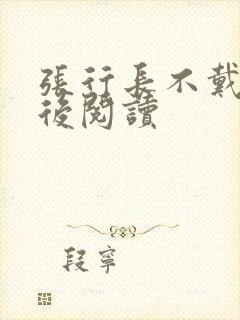 張行長不戴
後閱讀
段寧